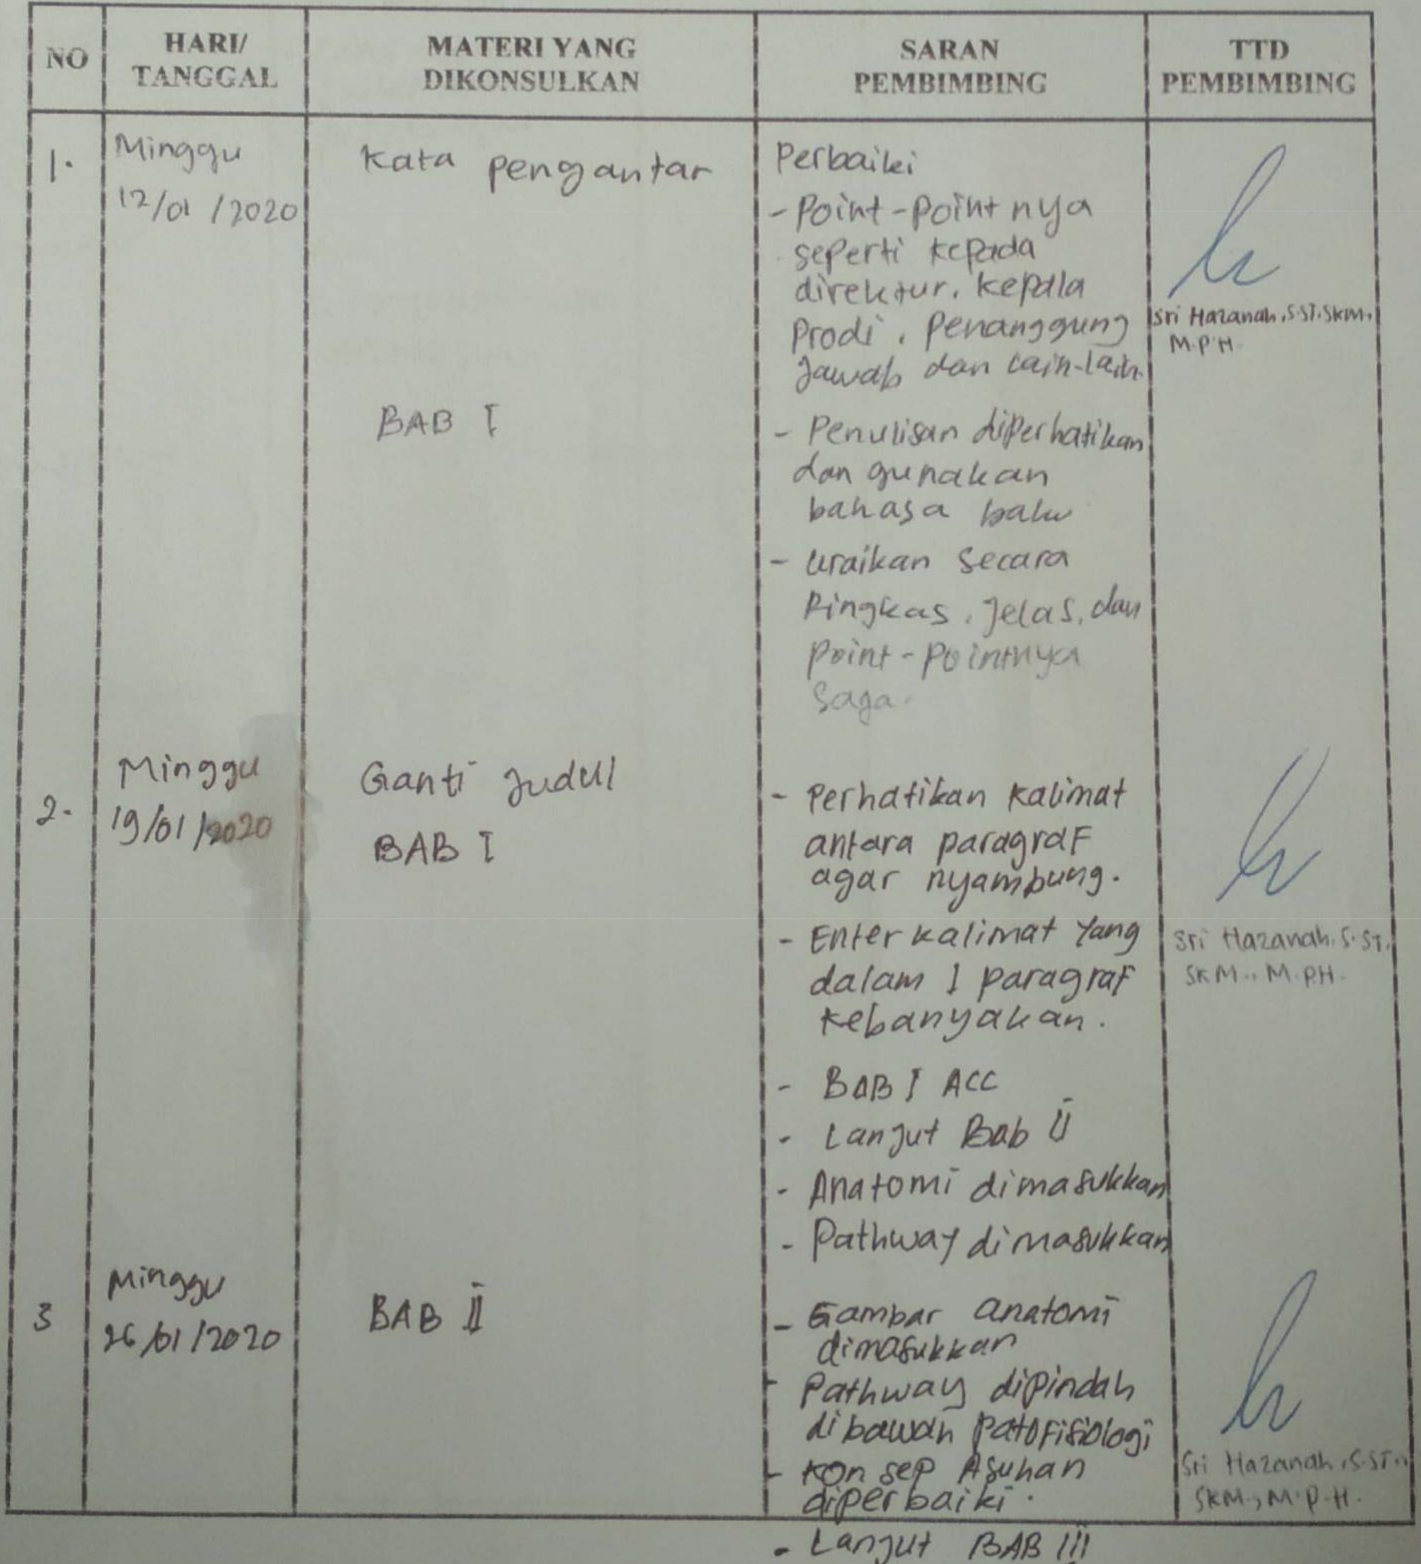 NO
HARI/
TANGGAL
MATERI YANG
DIKONSULKAN
SARAN
PEMBIMBING
TTD
PEMBIMBING
1.
Minggu
12/01/2020
Kata pengantar
Perbaiki
- Point-Point nya
seperti kepada
direktur, kepala
Prodi, Penanggung
Jawab dan lain-lain.
Sri Hazanah, S.ST, SKM.,
M.P.H.
BAB I
- Penulisan diperhatikan
dan gunakan
bahasa baku
- Uraikan secara
Ringkas, Jelas, dan
Point-Pointnya
saja.
2.
Minggu
19/01/2020
Ganti Judul
BAB I
- Perhatikan kalimat
antara paragraf
agar nyambung.
- Enter kalimat yang
dalam 1 paragraf
kebanyakan.
Sri Hazanah, S.ST,
SKM., M.PH.
- BAB I ACC
- Lanjut Bab II
- Anatomi dimasukkan
- Pathway dimasukkan
3
Minggu
26/01/2020
BAB II
- Gambar anatomi
dimasukkan
- Pathway dipindah
dibawah patofisiologi
- Konsep Asuhan
diperbaiki.
- Lanjut BAB III
Sri Hazanah, S.ST.,
SKM., M.P.H.